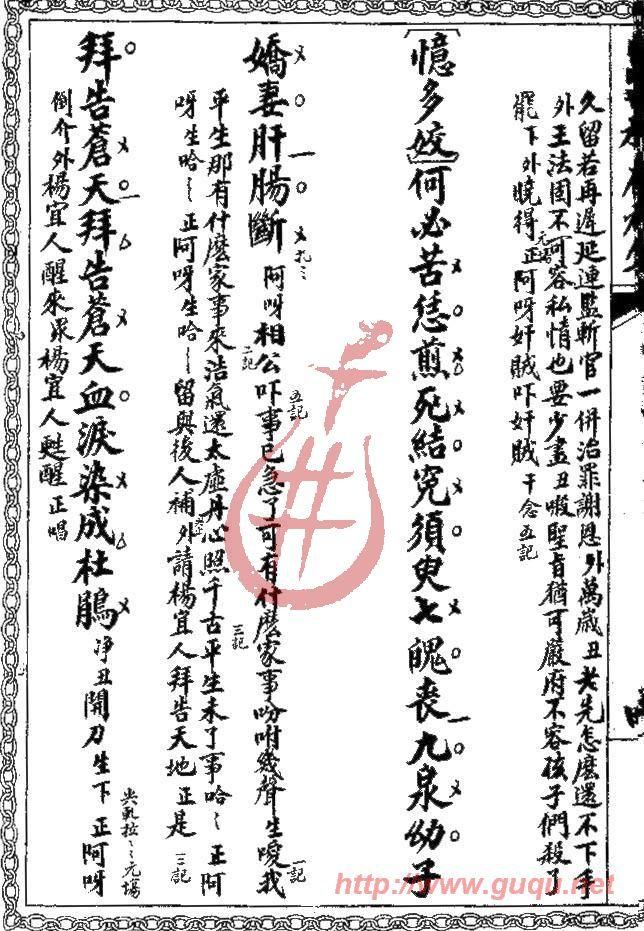 久留若再遲延連監斬官一併治罪謝恩外萬歲丑老先怎麽還不下手
外王法固不可容私情也要少盡丑嗳聖旨猶可嚴府不容孩子們殺了
罷下外曉得正阿呀奸賊吓奸賊干念五記
元場
〔憶多姣〕何必苦恁煎死結冤須臾七魄喪九泉幼子
嬌妻肝腸斷扎ミ阿呀相公吓事已急了可有什麽家事吩咐幾聲生嗳我
五記
一記
平生那有什麽家事來浩氣還太虛丹心照千古平生未了事哈ミ正阿
二記
三記
呀生哈ミ正阿呀生哈ミ留與後人補外請楊宜人拜告天地正是三記
拜告蒼天拜告蒼天血淚染成杜鵑净丑開刀生下正阿呀
元場
倒介外楊宜人醒來衆楊宜人甦醒正唱
http://www.guqu.net